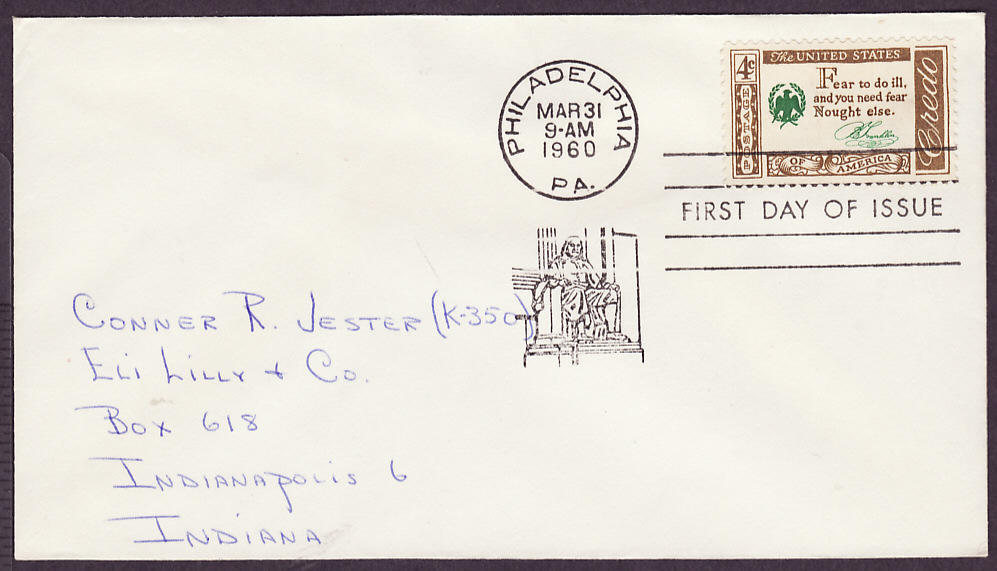 PHILADELPHIA
MAR 31
9-AM
1960
PA.
4c
The UNITED STATES
POSTAGE
Fear to do ill,
and you need fear
Nought else.
B Franklin
Credo
OF AMERICA
FIRST DAY OF ISSUE
CONNER R. JESTER (K-350)
ELI LILLY + CO.
BOX 618
INDIANAPOLIS 6
INDIANA